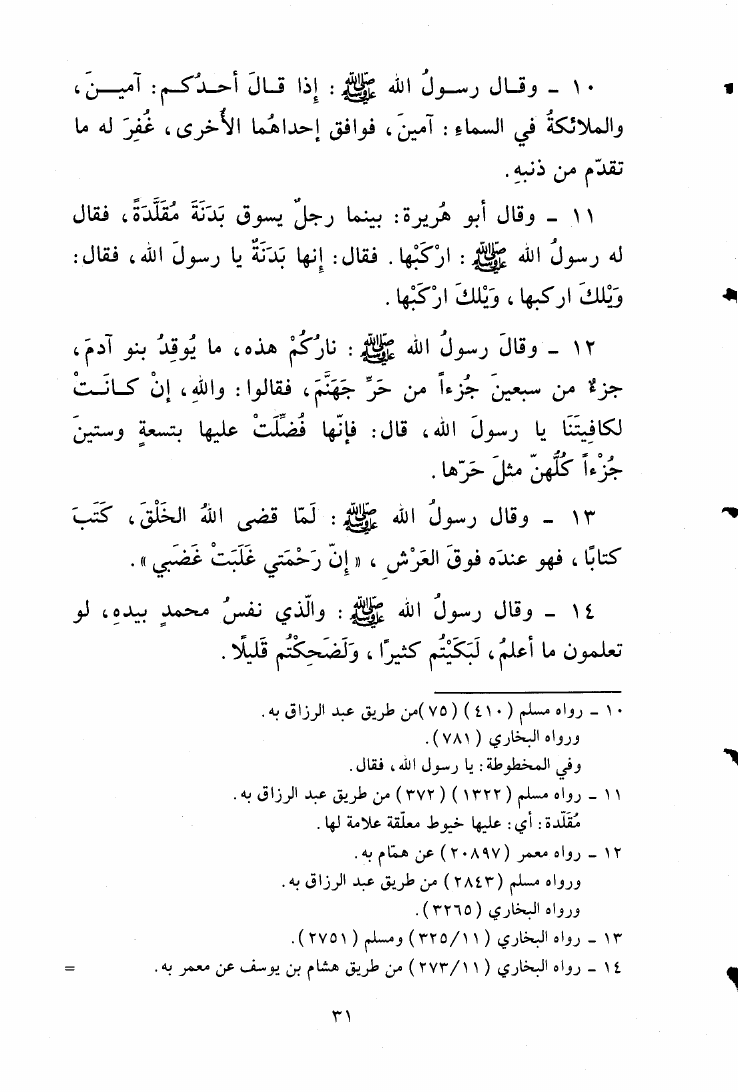 ١٠ ـ وقـال رسـولُ الله ﷺ : إِذا قـالَ أحـدُكـم: آميـنَ،
والملائكةُ في السماء : آمينَ، فوافق إحداهُما الأُخرى، غُفِرَ له ما
تقدّم من ذنبهِ.
١١ ـ وقال أبو هُريرة: بينما رجلٌ يسوق بَدَنَةً مُقَلَّدَةً، فقال
له رسولُ الله ﷺ : ارْكَبْها. فقال: إنها بَدَنَةٌ يا رسولَ الله، فقال:
وَيْلكَ اركبها، وَيْلكَ ارْكَبْها.
١٢ ـ وقالَ رسولُ الله ﷺ : نارُكُمْ هذه، ما يُوقِدُ بنو آدمَ،
جزءٌ من سبعينَ جُزءاً من حَرِّ جَهَنَّمَ، فقالوا: واللهِ، إنْ كـانـتْ
لكافيتَنَا يا رسولَ الله، قال: فإنّها فُضِّلَتْ عليها بتسعةٍ وستينَ
جُزْءاً كُلُّهنّ مثلَ حَرّها.
١٣ ـ وقال رسولُ الله ﷺ : لَمّا قضى اللهُ الخَلْقَ، كَتَبَ
كتابًا، فهو عندَه فوقَ العَرْشِ، «إنّ رَحْمَتي غَلَبَتْ غَضَبي».
١٤ ـ وقال رسولُ الله ﷺ : والّذي نفسُ محمدٍ بيدهِ، لو
تعلمون ما أعلمُ، لَبَكَيْتُم كثيرًا، ولَضَحِكْتُم قَليلًا.
١٠ ـ رواه مسلم (٤١٠) (٧٥)من طريق عبد الرزاق به.
ورواه البخاري (٧٨١).
وفي المخطوطة: يا رسول الله، فقال.
١١ ـ رواه مسلم (١٣٢٢) (٣٧٢) من طريق عبد الرزاق به.
مُقَلّدة: أي: عليها خيوط معلّقة علامة لها.
١٢ ـ رواه معمر (٢٠٨٩٧) عن همّام به.
ورواه مسلم (٢٨٤٣) من طريق عبد الرزاق به.
ورواه البخاري (٣٢٦٥).
١٣ ـ رواه البخاري (٣٢٥/١١) ومسلم (٢٧٥١).
١٤ ـ رواه البخاري (٢٧٣/١١) من طريق هشام بن يوسف عن معمر به. =
٣١